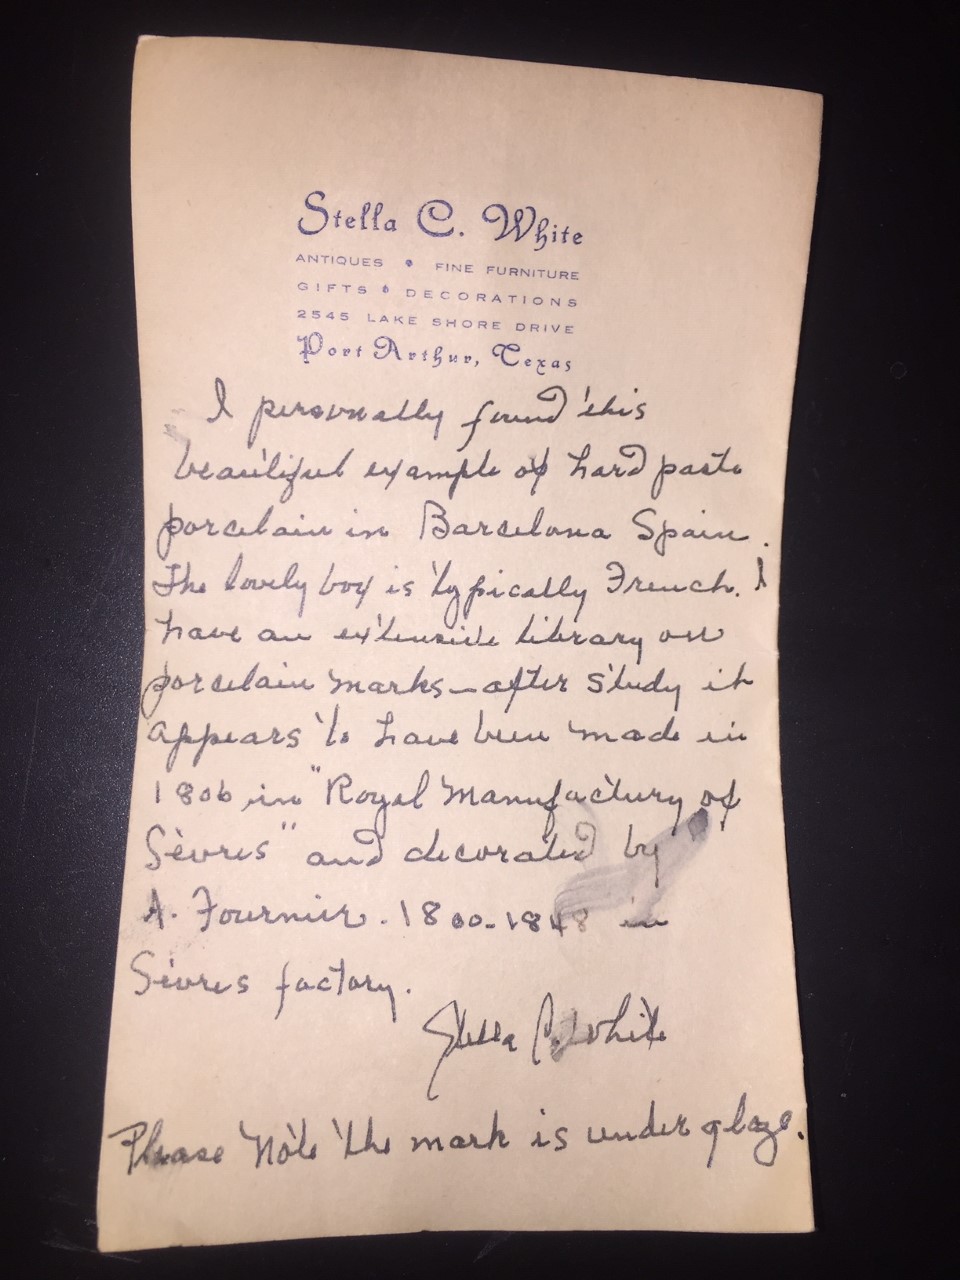 Stella C. White
ANTIQUES • FINE FURNITURE
GIFTS • DECORATIONS
2545 LAKE SHORE DRIVE
Port Arthur, Texas
I personally found this
beautiful example of hard paste
porcelain in Barcelona Spain.
The lovely box is typically French. I
have an extensive library on
porcelain marks—after study it
appears to have been made in
1806 in "Royal Manufactury of
Sèvres" and decorated by
A. Fournier. 1800-1848 in
Sèvres factory.
Stella C. White
Please note the mark is under glaze.